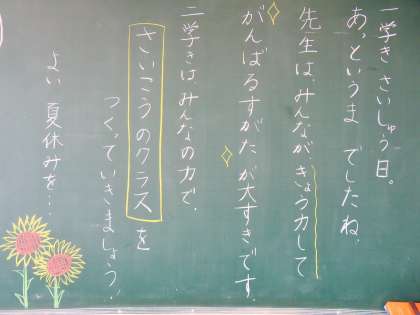 一学き さいしゅう日。
あっというま でしたね。
先生は、みんなが、きょう力して
がんばるすがたが大すきです。
二学きは みんなの力で、
さいこうのクラスを
つくっていきましょう！
よい 夏休みを…